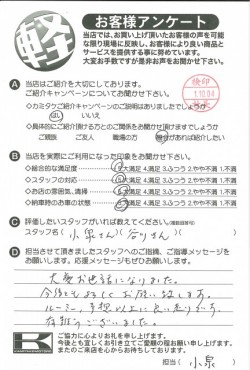 軽
お客様アンケート
当店では、お買い上げ頂いたお客様の声を可能
な限り現場に反映し、お客様により良い商品と
サービスを提供する事に努めています。
大変お手数ですが是非お声をお聞かせ下さい。
A 当店はご紹介を大切にしております。
ご紹介キャンペーンについてお聞かせ下さい。
検印
1.10.04
◇カミタケご紹介キャンペーンのご説明はありましたでしょうか
はい いいえ
◇具体的にご紹介頂ける方とのご関係をお聞かせ頂けますでしょうか
ご親族 ご友人 職場の方 機会があれば紹介したい
B 当店を実際にご利用になった印象をお聞かせ下さい。
◇総合的な満足度 5.大満足 4.満足 3.ふつう 2.やや不満 1.不満
◇スタッフの対応 5.大満足 4.満足 3.ふつう 2.やや不満 1.不満
◇お店の雰囲気、清掃 5.大満足 4.満足 3.ふつう 2.やや不満 1.不満
◇納車時のお車の状態 5.大満足 4.満足 3.ふつう 2.やや不満 1.不満
C 評価したいスタッフがいれば教えてください。(複数回答可)
スタッフ名( 小泉さん )( 谷りさん )
D 担当させて頂きましたスタッフへのご指摘、ご指導メッセージを
お願い致します。応援メッセージもぜひお願い致します。
大変お世話になりました。
今後ともよろしくお願い致します。
ルーミー、予想以上に良い走りです。
有難うございました。
K
ご協力に心よりお礼を申し上げます。
今後とも宜しくお引き立てご愛顧の程お願い申し上げます。
またのご来店を心からお待ちしております。
担当( 小泉 )